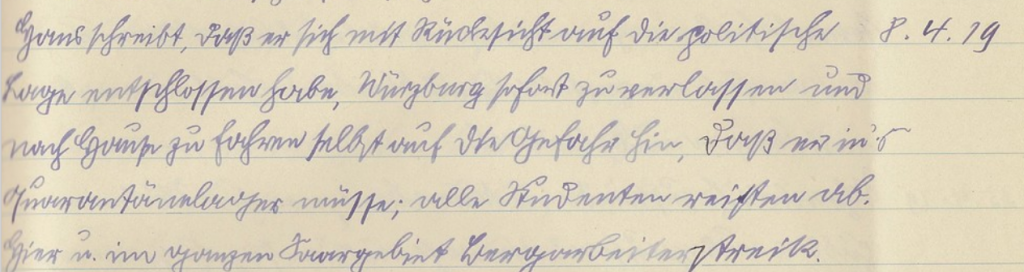 Hans schreibt, daß er sich mit Rücksicht auf die politische 8.4.19
Lage entschlossen habe, Würzburg sofort zu verlassen und
nach Hause zu fahren selbst auf die Gefahr hin, daß er in's
Quarantänelager müsse; alle Studenten reisten ab.
Hier u. im ganzen Saargebiet Bergarbeiterstreik.